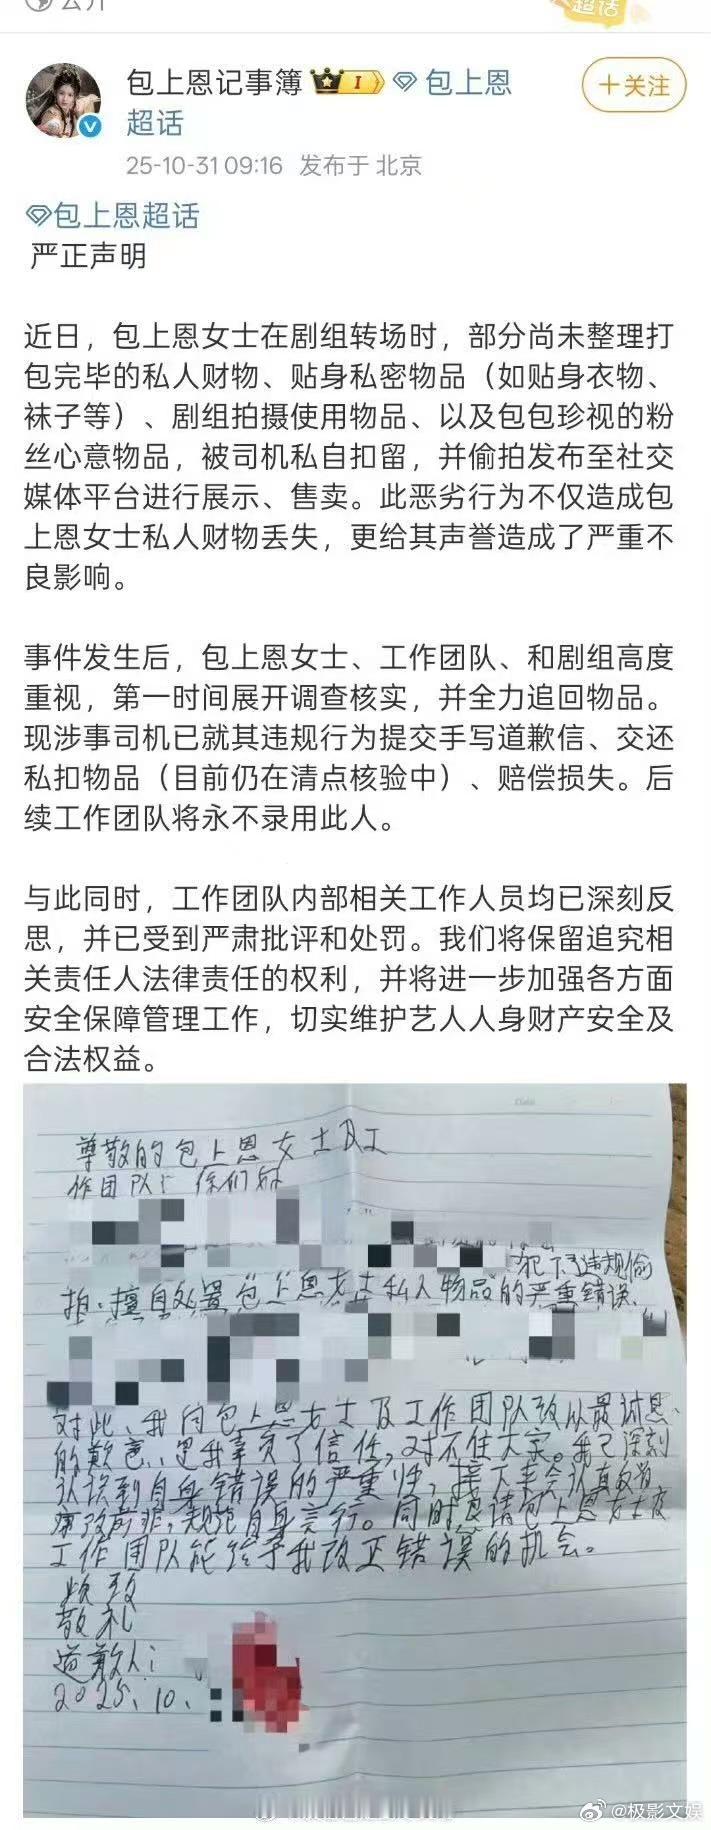 公开
超话
包上恩记事簿 I 包上恩
超话
+关注
25-10-31 09:16 发布于 北京
包上恩超话
严正声明
近日，包上恩女士在剧组转场时，部分尚未整理打
包完毕的私人财物、贴身私密物品（如贴身衣物、
袜子等）、剧组拍摄使用物品、以及包包珍视的粉
丝心意物品，被司机私自扣留，并偷拍发布至社交
媒体平台进行展示、售卖。此恶劣行为不仅造成包
上恩女士私人财物丢失，更给其声誉造成了严重不
良影响。
事件发生后，包上恩女士、工作团队、和剧组高度
重视，第一时间展开调查核实，并全力追回物品。
现涉事司机已就其违规行为提交手写道歉信、交还
私扣物品（目前仍在清点核验中）、赔偿损失。后
续工作团队将永不录用此人。
与此同时，工作团队内部相关工作人员均已深刻反
思，并已受到严肃批评和处罚。我们将保留追究相
关责任人法律责任的权利，并将进一步加强各方面
安全保障管理工作，切实维护艺人人身财产安全及
合法权益。
尊敬的包上恩女士及工
作团队：你们好
犯下了违规偷
拍、擅自处置包上恩女士私人物品的严重错误，
对此、我向包上恩女士及工作团队致以最诚恳
的歉意，是我辜负了信任，对不住大家。我已深刻
认识到自身错误的严重性，接下来会认真反省
痛改前非，规范自身言行。同时恳请包上恩女士及
工作团队能给予我改正错误的机会。
敬礼
道歉人：
2025.10.
@极影文娱